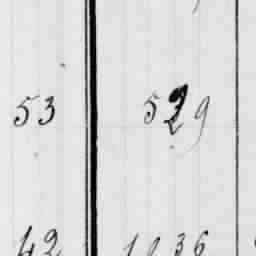 53 529
42 1036